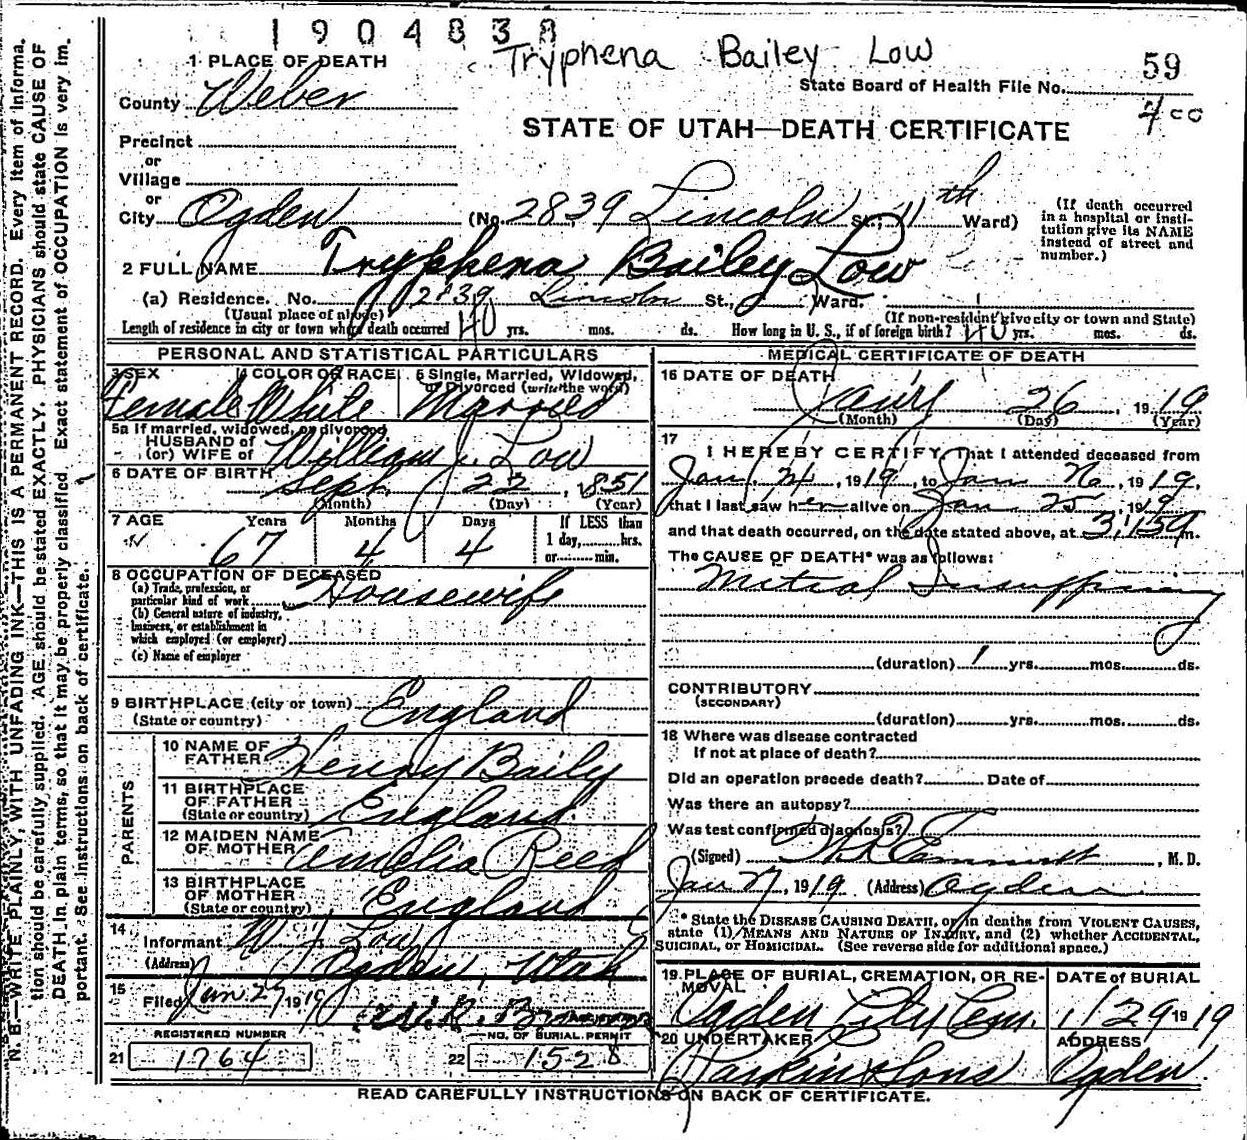 1904838
Tryphena Bailey Low
59
State Board of Health File No.
STATE OF UTAH—DEATH CERTIFICATE
1 PLACE OF DEATH
County Weber
Precinct
or
Village
or
City Ogden (No. 2839 Lincoln St., 11th Ward)
(If death occurred
in a hospital or insti-
tution give its NAME
instead of street and
number.)
2 FULL NAME Tryphena Bailey Low
(a) Residence. No. 2839 Lincoln St., Ward.
(Usual place of abode) (If non-resident give city or town and State)
Length of residence in city or town where death occurred 40 yrs. mos. ds. How long in U. S., if of foreign birth? 40 yrs. mos. ds.
PERSONAL AND STATISTICAL PARTICULARS
3 SEX 4 COLOR OR RACE 5 Single, Married, Widowed,
or Divorced (write the word)
Female White Married
5a If married, widowed, or divorced
HUSBAND of
(or) WIFE of William J. Low
6 DATE OF BIRTH Sept. 22, 1851
(Month) (Day) (Year)
7 AGE Years Months Days If LESS than
1 day, hrs.
or min.
67 4 4
8 OCCUPATION OF DECEASED
(a) Trade, profession, or
particular kind of work Housewife
(b) General nature of industry,
business, or establishment in
which employed (or employer)
(c) Name of employer
9 BIRTHPLACE (city or town) England
(State or country)
PARENTS
10 NAME OF
FATHER Henry Baily
11 BIRTHPLACE
OF FATHER England
(State or country)
12 MAIDEN NAME
OF MOTHER Amelia Reed
13 BIRTHPLACE
OF MOTHER England
(State or country)
14
Informant W J Low
(Address) Ogden, Utah
15
Filed Jan 27, 1919
REGISTERED NUMBER NO. OF BURIAL PERMIT
21 1764 22 1528
MEDICAL CERTIFICATE OF DEATH
16 DATE OF DEATH
Jany 26, 1919
(Month) (Day) (Year)
17
I HEREBY CERTIFY, That I attended deceased from
Jan. 24, 1919, to Jan 26, 1919,
that I last saw her alive on Jan 25, 1919
and that death occurred, on the date stated above, at 3:15 m.
The CAUSE OF DEATH* was as follows:
Mitral Insufficiency
(duration) 1 yrs. mos. ds.
CONTRIBUTORY
(SECONDARY)
(duration) yrs. mos. ds.
18 Where was disease contracted
If not at place of death?
Did an operation precede death? Date of
Was there an autopsy?
Was test confirmed diagnosis?
(Signed) Emmett, M. D.
Jan 27, 1919 (Address) Ogden
* State the DISEASE CAUSING DEATH, or in deaths from VIOLENT CAUSES,
state (1) MEANS AND NATURE OF INJURY, and (2) whether ACCIDENTAL,
SUICIDAL, or HOMICIDAL. (See reverse side for additional space.)
19 PLACE OF BURIAL, CREMATION, OR RE-
MOVAL DATE of BURIAL
Ogden City Cem. 1/29 1919
20 UNDERTAKER ADDRESS
Larkin & Sons Ogden.
READ CAREFULLY INSTRUCTIONS ON BACK OF CERTIFICATE.
N. B.—WRITE PLAINLY, WITH UNFADING INK—THIS IS A PERMANENT RECORD. Every item of informa-
tion should be carefully supplied. AGE should be stated EXACTLY. PHYSICIANS should state CAUSE OF
DEATH in plain terms, so that it may be properly classified. Exact statement of OCCUPATION is very im-
portant. See instructions on back of certificate.